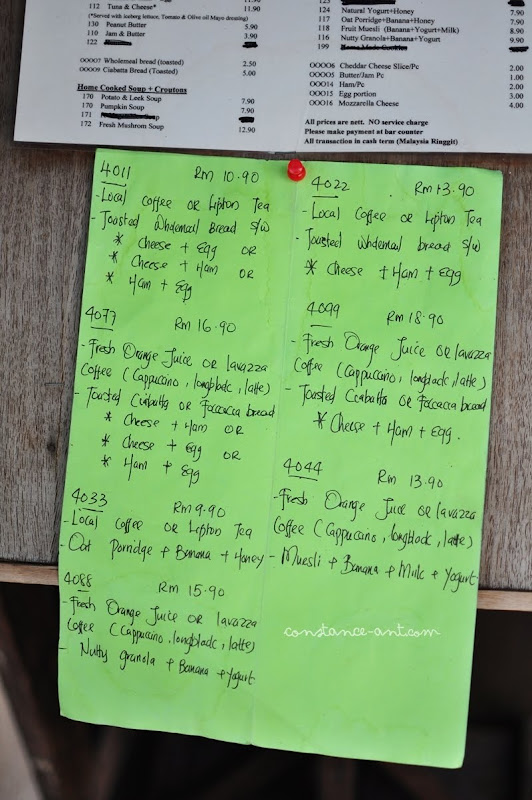 112 Tuna & Cheese* 11.90
(*Served with iceberg lettuce, Tomato & Olive oil Mayo dressing)
130 Peanut Butter 5.90
110 Jam & Butter 3.90
122
OOOO7 Wholemeal bread (toasted) 2.50
OOOO9 Ciabatta Bread (Toasted) 5.00
Home Cooked Soup + Croutons
170 Potato & Leek Soup 7.90
170 Pumpkin Soup 7.90
171
172 Fresh Mushrom Soup 12.90
123
124 Natural Yogurt+Honey 7.90
117 Oat Porridge+Banana+Honey 7.90
118 Fruit Muesli (Banana+Yogurt+Milk) 8.90
116 Nutty Granola+Banana+Yogurt 9.90
199 Home Made Cookies
OOOO6 Cheddar Cheese Slice/Pc 2.00
OOOO5 Butter/Jam Pc 1.00
OOO14 Ham/Pc 2.00
OOO15 Egg portion 3.00
OOO16 Mozzarella Cheese 4.00
All prices are nett. NO service charge
Please make payment at bar counter
All transaction in cash term (Malaysia Ringgit)
4011 Rm 10.90
- Local coffee or Lipton Tea
- Toasted Wholemeal Bread s/w
* Cheese + Egg or
* Cheese + Ham or
* Ham + Egg
4077 Rm 16.90
- Fresh Orange Juice or lavazza
Coffee (Cappuccino, longblack, latte)
- Toasted Ciabatta or Foccacca bread
* Cheese + Ham or
* Cheese + Egg or
* Ham + Egg
4033 Rm 9.90
- Local Coffee or Lipton Tea
- Oat Porridge + Banana + Honey
4088 Rm 15.90
- Fresh Orange Juice or lavazza
Coffee (Cappuccino, longblack, latte)
- Nutty granola + Banana + Yogurt
4022 Rm 13.90
- Local Coffee or Lipton Tea
- Toasted Wholemeal bread s/w
* Cheese + Ham + Egg
4099 Rm 18.90
- Fresh Orange Juice or lavazza
Coffee (Cappuccino, longblack, latte)
- Toasted Ciabatta or Foccacca bread
* Cheese + Ham + Egg.
4044 Rm 13.90
- Fresh Orange Juice or lavazza
Coffee (Cappuccino, longblack, latte)
- Muesli + Banana + Milk + Yogurt
constance-ant.com